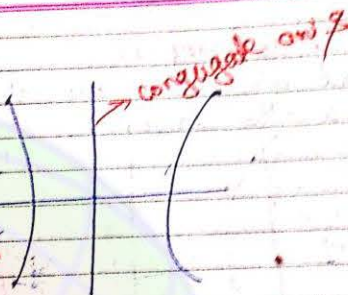 conjugate axis